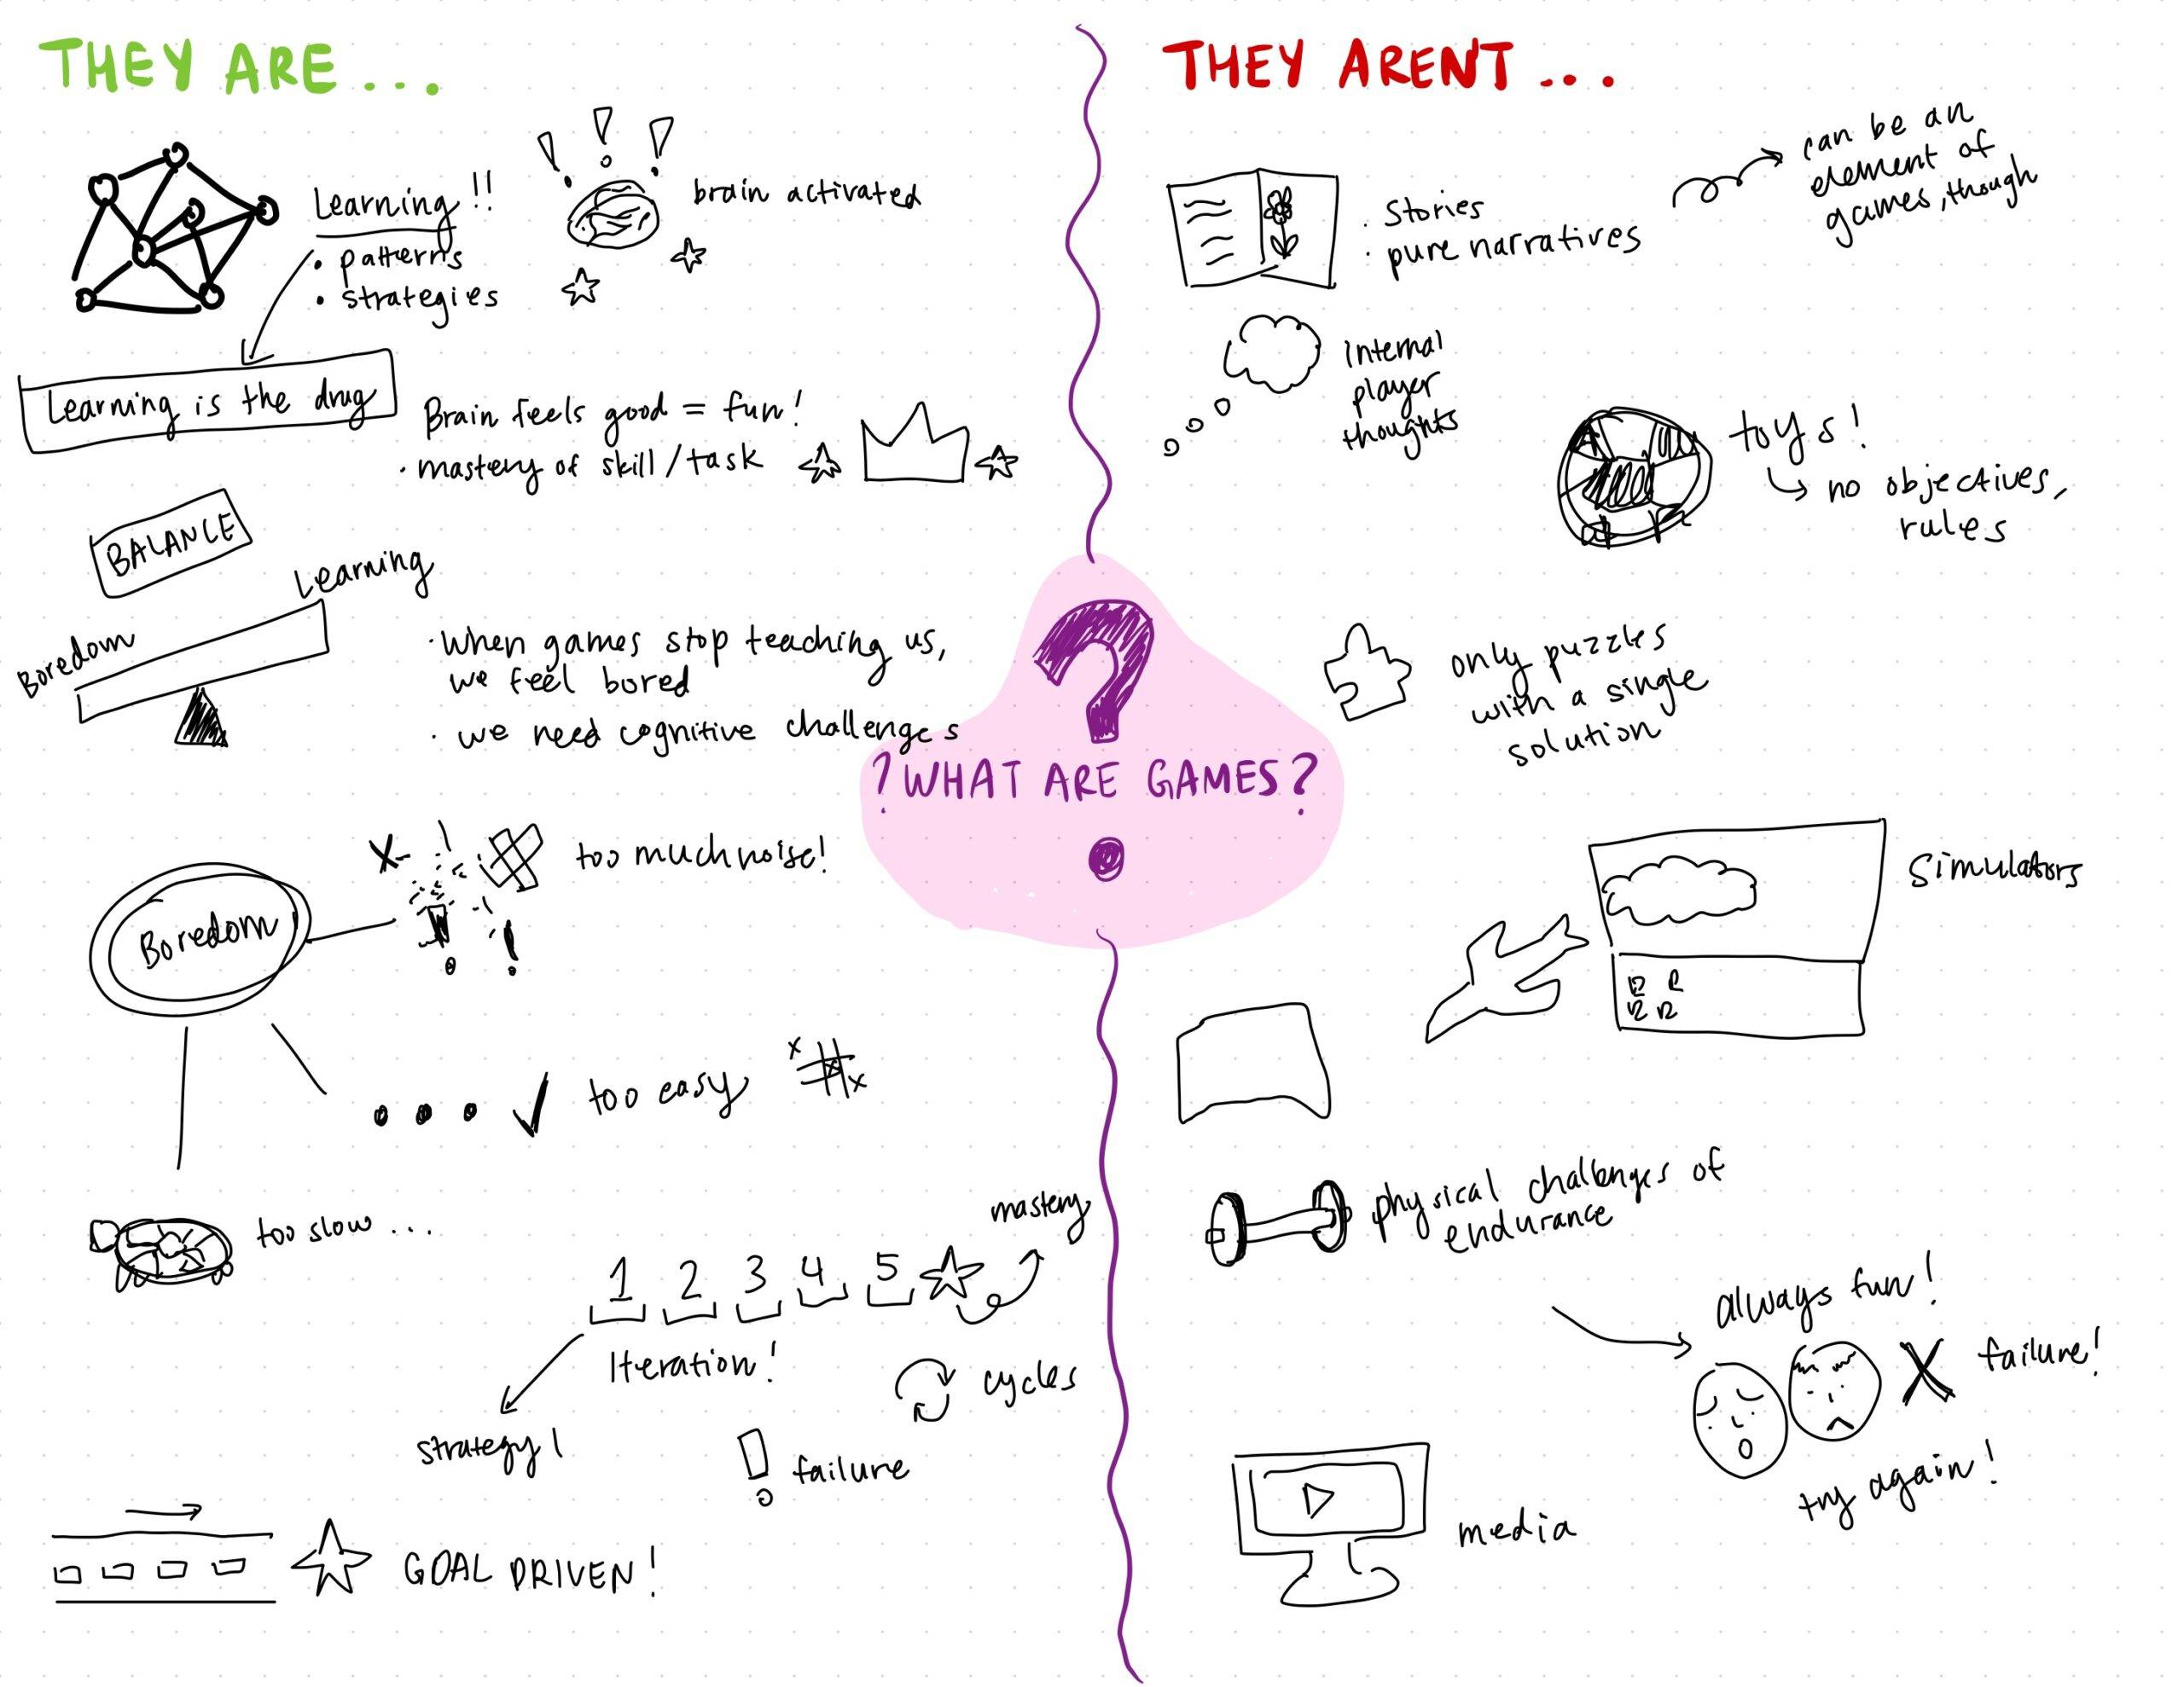 THEY ARE ...
Learning!!
• patterns
• strategies
brain activated
Learning is the drug
Brain feels good = fun!
• mastery of skill/task
BALANCE
Learning
Boredom
• When games stop teaching us,
we feel bored
• we need cognitive challenges
Boredom
too much noise!
too easy
too slow ...
1 2 3 4 5
mastery
Iteration!
strategy!
cycles
failure
GOAL DRIVEN!
? WHAT ARE GAMES?
THEY ARENT ...
• Stories
• pure narratives
can be an
element of
games, though
Internal
player
thoughts
toys!
no objectives,
rules
only puzzles
with a single
solution
Simulators
physical challenges of
endurance
always fun!
failure!
try again!
media